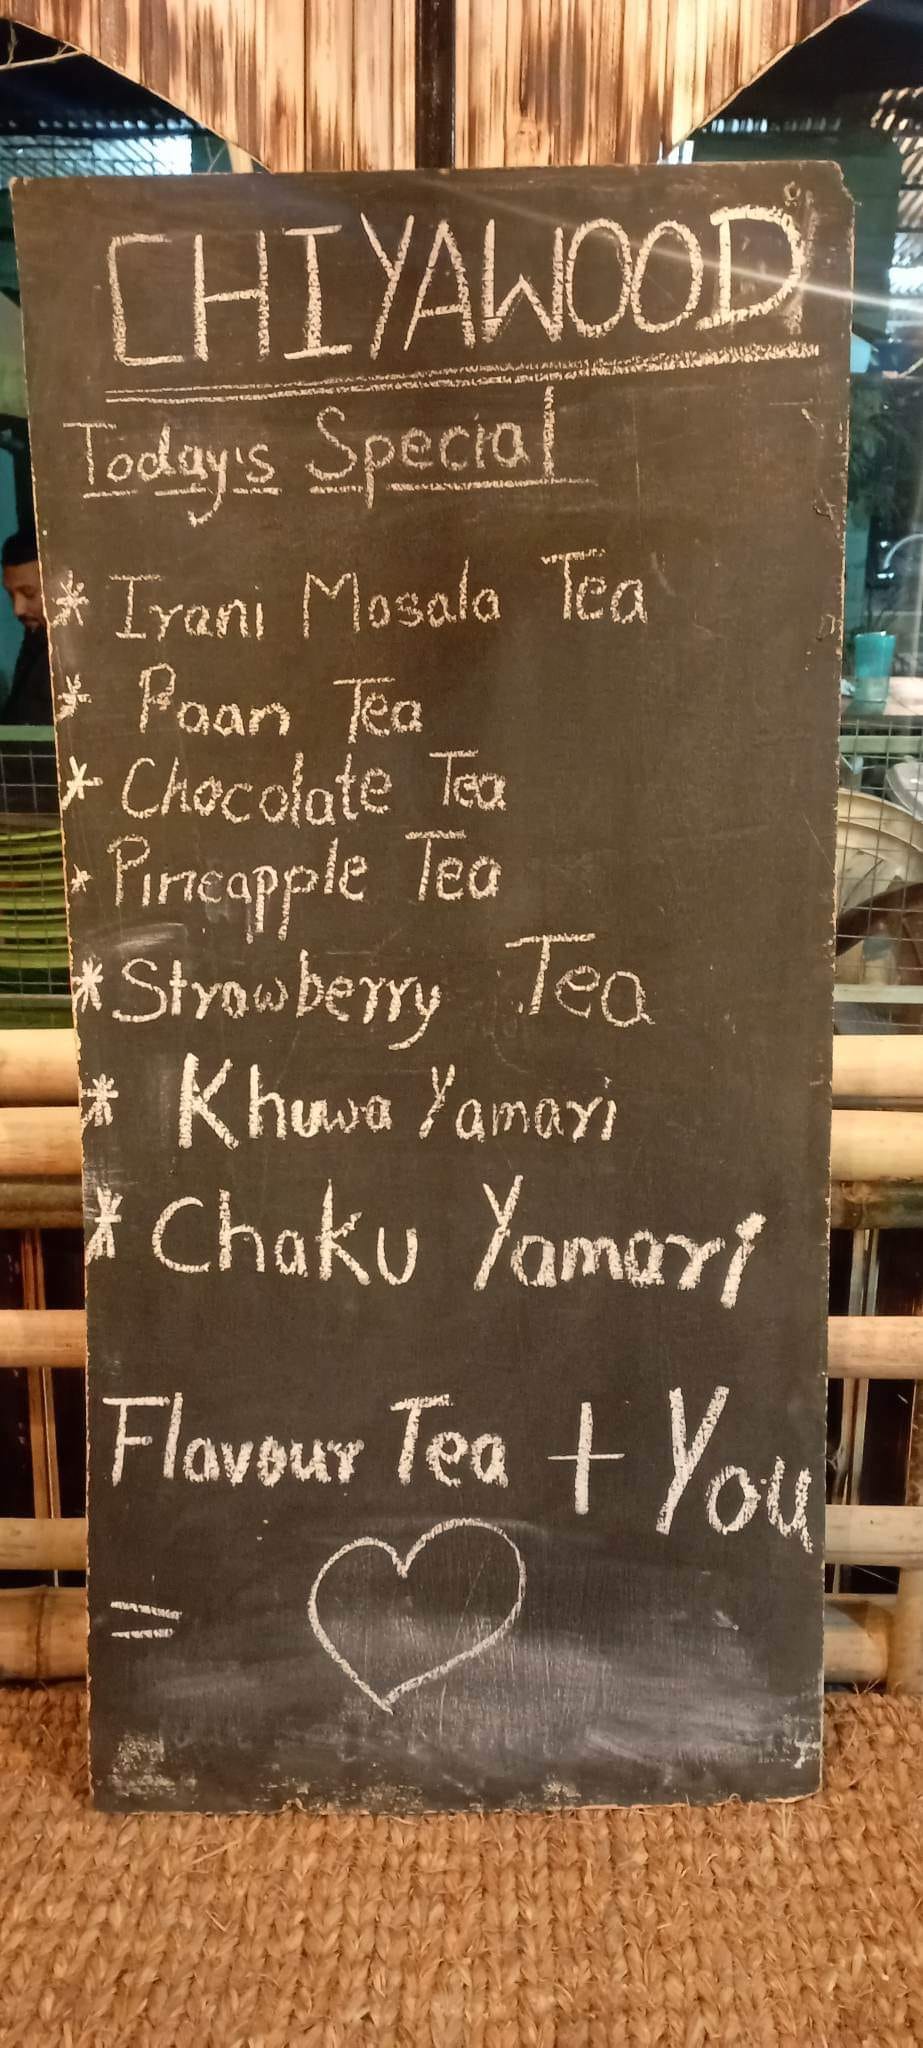 CHIYAWOOD
Today's Special
* Irani Masala Tea
* Paan Tea
* Chocolate Tea
* Pineapple Tea
* Strawberry Tea
* Khuwa Yamari
* Chaku Yamari
Flavour Tea + You
= ♡